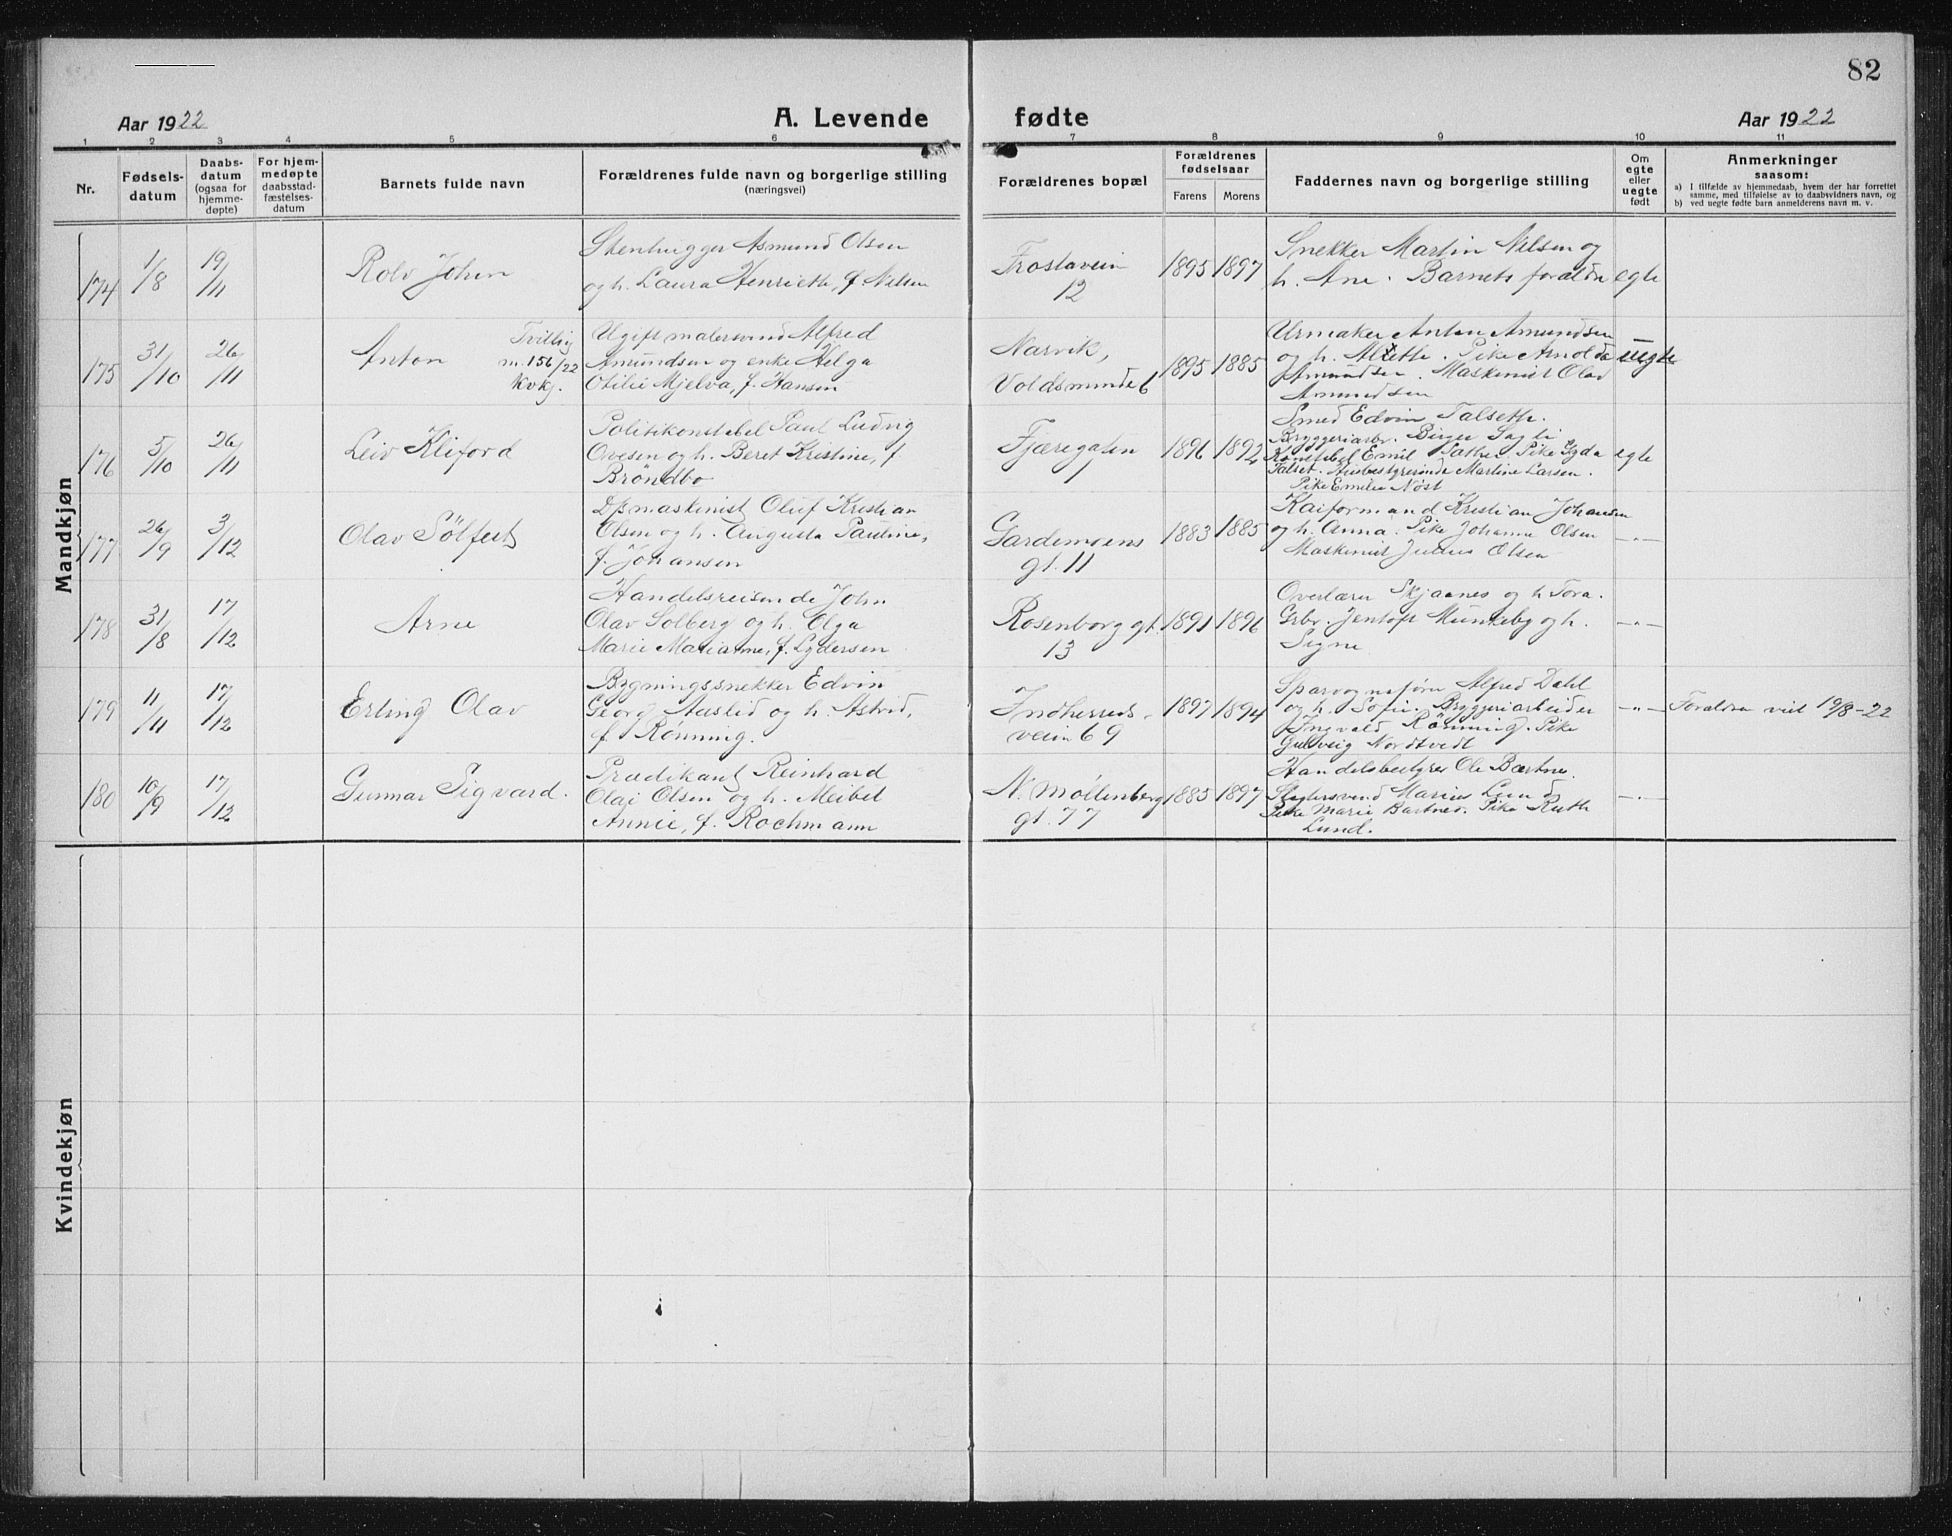 82
Aar 1922
A. Levende fødte
Aar 1922
1 2 3 4 5 6 7 8 9 10 11
Nr.
Fødsels-
datum
Daabs-
datum
(ogsaa for
hjemme-
døpte)
For hjem-
medøpte
daabsstad-
fæstelses-
datum
Barnets fulde navn
Forældrenes fulde navn og borgerlige stilling
(næringsvei)
Forældrenes bopæl
Forældrenes
fødselsaar
Farens Morens
Faddernes navn og borgerlige stilling
Om
egte
eller
uegte
født
Anmerkninger
saasom:
a) I tilfælde av hjemmedaab, hvem der har forrettet
samme, med tilføielse av to daabsvidners navn, og
b) ved uegte fødte barn anmelderens navn m. v.
Mandkjøn
174 1/8 19/11
Rolv Johan
Stenhugger Asmund Olsen
og h. Laura Henriette, f. Nilsen
Frostavein
12
1895 1897
Snekker Martin Nilsen og
h. Ane. Barnets foraldre
egte
175 31/10 26/11
Anton
Tvilling
m. 156/22
kvkj.
Ugift malersvend Alfred
Amundsen og enke Helga
Otilie Mjelva, f. Hansen
Narvik,
Voldsminde 6
1895 1885
Urmaker Anton Amundsen
og h. Pike Arnolda
Amundsen. Maskinist Olav
Amundsen
uegte
176 5/10 26/11
Leiv Kliford
Politikonstabel Paul Ludvig
Ovesen og h. Beret Kristine, f.
Bröndbo
Fjæregaten
1896 1892
Smed Edvin Talseth.
Bryggeriarb. Birger Sagli
Konstabel Emil Sæther. Pike Gyda
Talset. Husbestyrerinde Martine Larsen.
Pike Emilie Nöst
egte
177 26/9 3/12
Olav Sölfest
Dpsmaskinist Oluf Kristian
Olsen og h. Augusta Pauline,
f. Johansen
Gardemoens
gt. 11
1883 1885
Kaiformand Kristian Johansen
og h. Anna. Pike Johanne Olsen
Maskinist Julius Olsen
—"—
178 31/8 17/12
Arne
Handelsreisende John
Olav Solberg og h. Olga
Marie Marianne, f. Lydersen
Rosenborg gt.
13
1891 1896
Overlærer Skjaanes og h. Tora.
Grbr. Jentoft Munkeby og h.
Signe
—"—
179 11/11 17/12
Erling Olav
Bygningssnekker Edvin
Georg Auslid og h. Astrid,
f. Rönning.
Indherreds-
vein 69
1897 1894
Sporvognsförer Alfred Dahl
og h. Sofie. Bryggeriarbeider
Ingvald Rönning. Pike
Gudveig Nordtvedt
—"—
Foraldre viet 19/8-22
180 10/9 17/12
Gunnar Sigvard.
Prædikant Reinhard
Olai Olsen og h. Meibel
Annie, f. Rochmann
N. Möllenberg
gt. 77
1885 1897
Handelsbestyrer Ole Bartnes.
Marius Lund
Pike Marie Bartnes. Pike Ruth
Lund.
—"—
Kvindekjøn